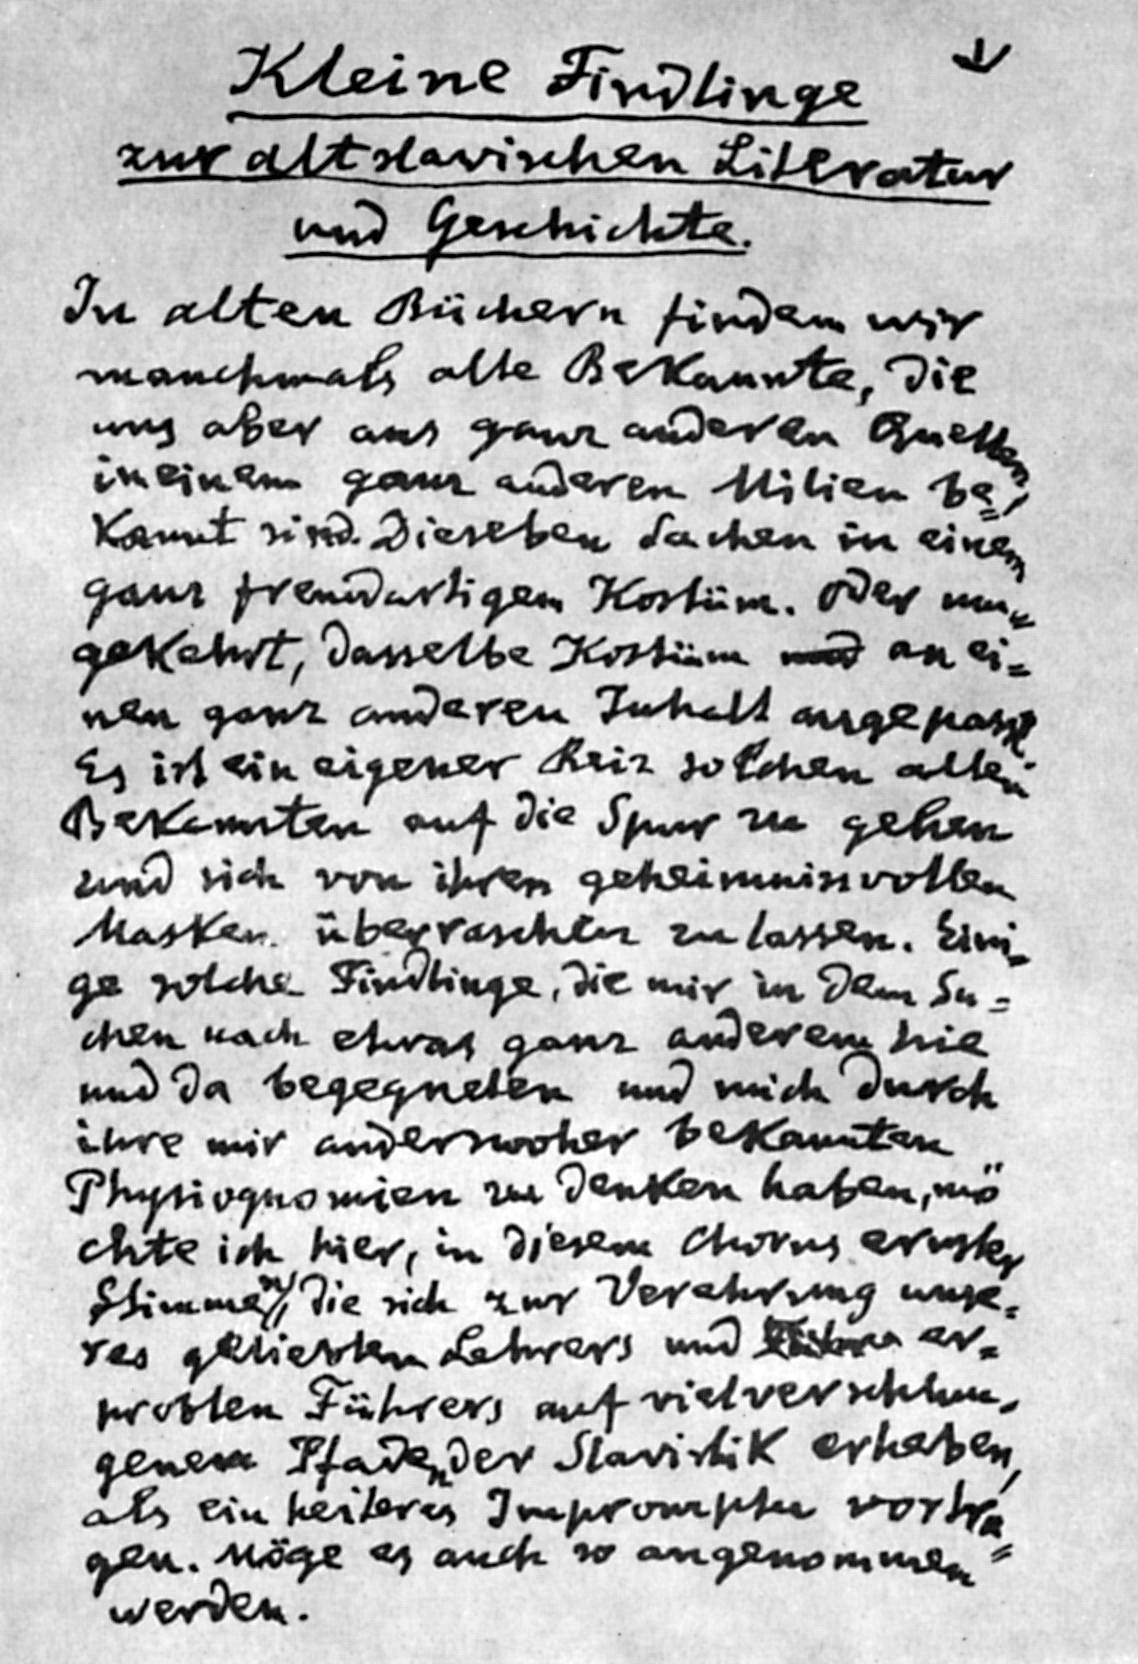 Kleine Findlinge
zur altslavischen Literatur
und Geschichte.
In alten Büchern finden wir
manchmals alte Bekannte, die
uns aber aus ganz anderen Quellen,
in einem ganz anderen Milieu be=
kannt sind. Dieselben Sachen in einem
ganz fremdartigem Kostüm. Oder um=
gekehrt, dasselbe Kostüm an ei=
nen ganz anderen Inhalt angepasst.
Es ist ein eigener Reiz solchen alten
Bekannten auf die Spur zu gehen
und sich von ihren geheimnissvollen
Masken überraschen zu lassen. Eini=
ge solche Findlinge, die mir in dem Su=
chen nach etwas ganz anderem hie
und da begegneten und mich durch
ihre mir anderswoher bekannten
Physiognomien zu denken haben, mö
chte ich hier, in diesem Chorus ernster
Stimmen, die sich zur Verehrung unse=
res geliebten Lehrers und er=
probten Führers auf vielverschlun=
genen Pfaden der Slavistik erheben,
als ein heiteres Impromptu vortra=
gen. Möge es auch so angenommen
werden.